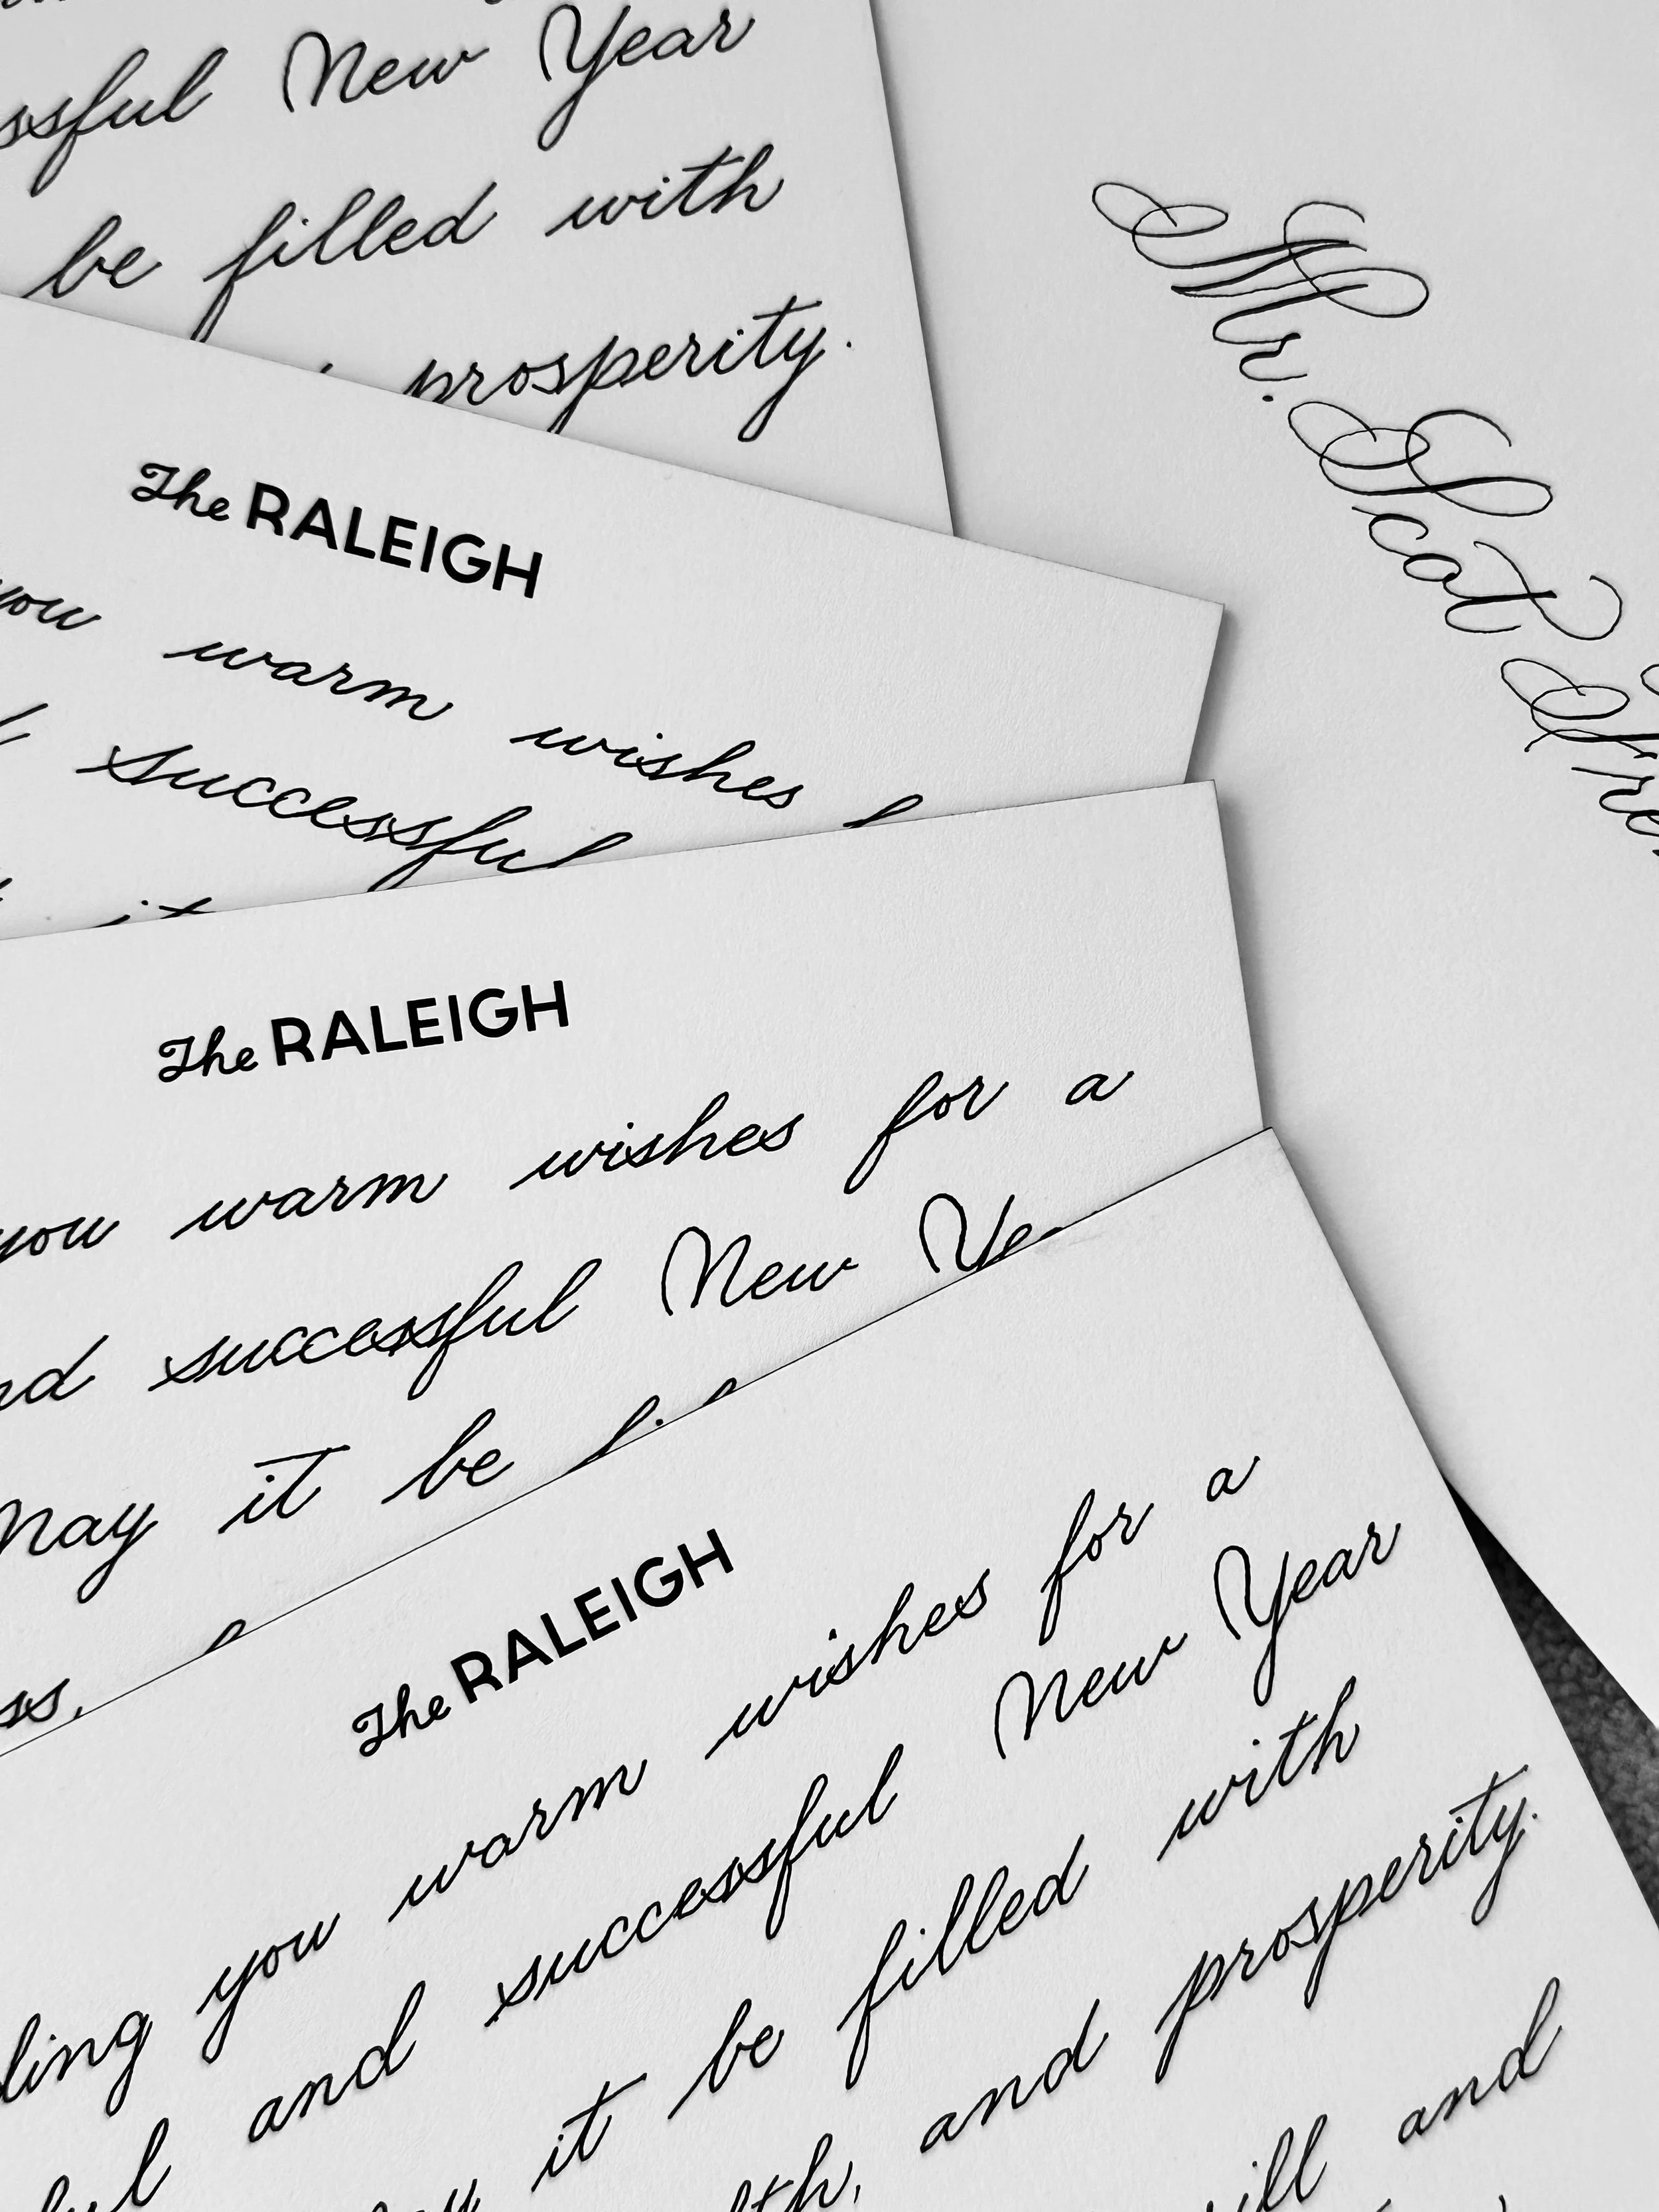 New Year
be filled with
prosperity.
The RALEIGH
you warm wishes
successful
it
The RALEIGH
you warm wishes for a
successful New
May it be
The RALEIGH
you warm wishes for a
and successful New Year
it be filled with
and prosperity.
and
Mr. Scot